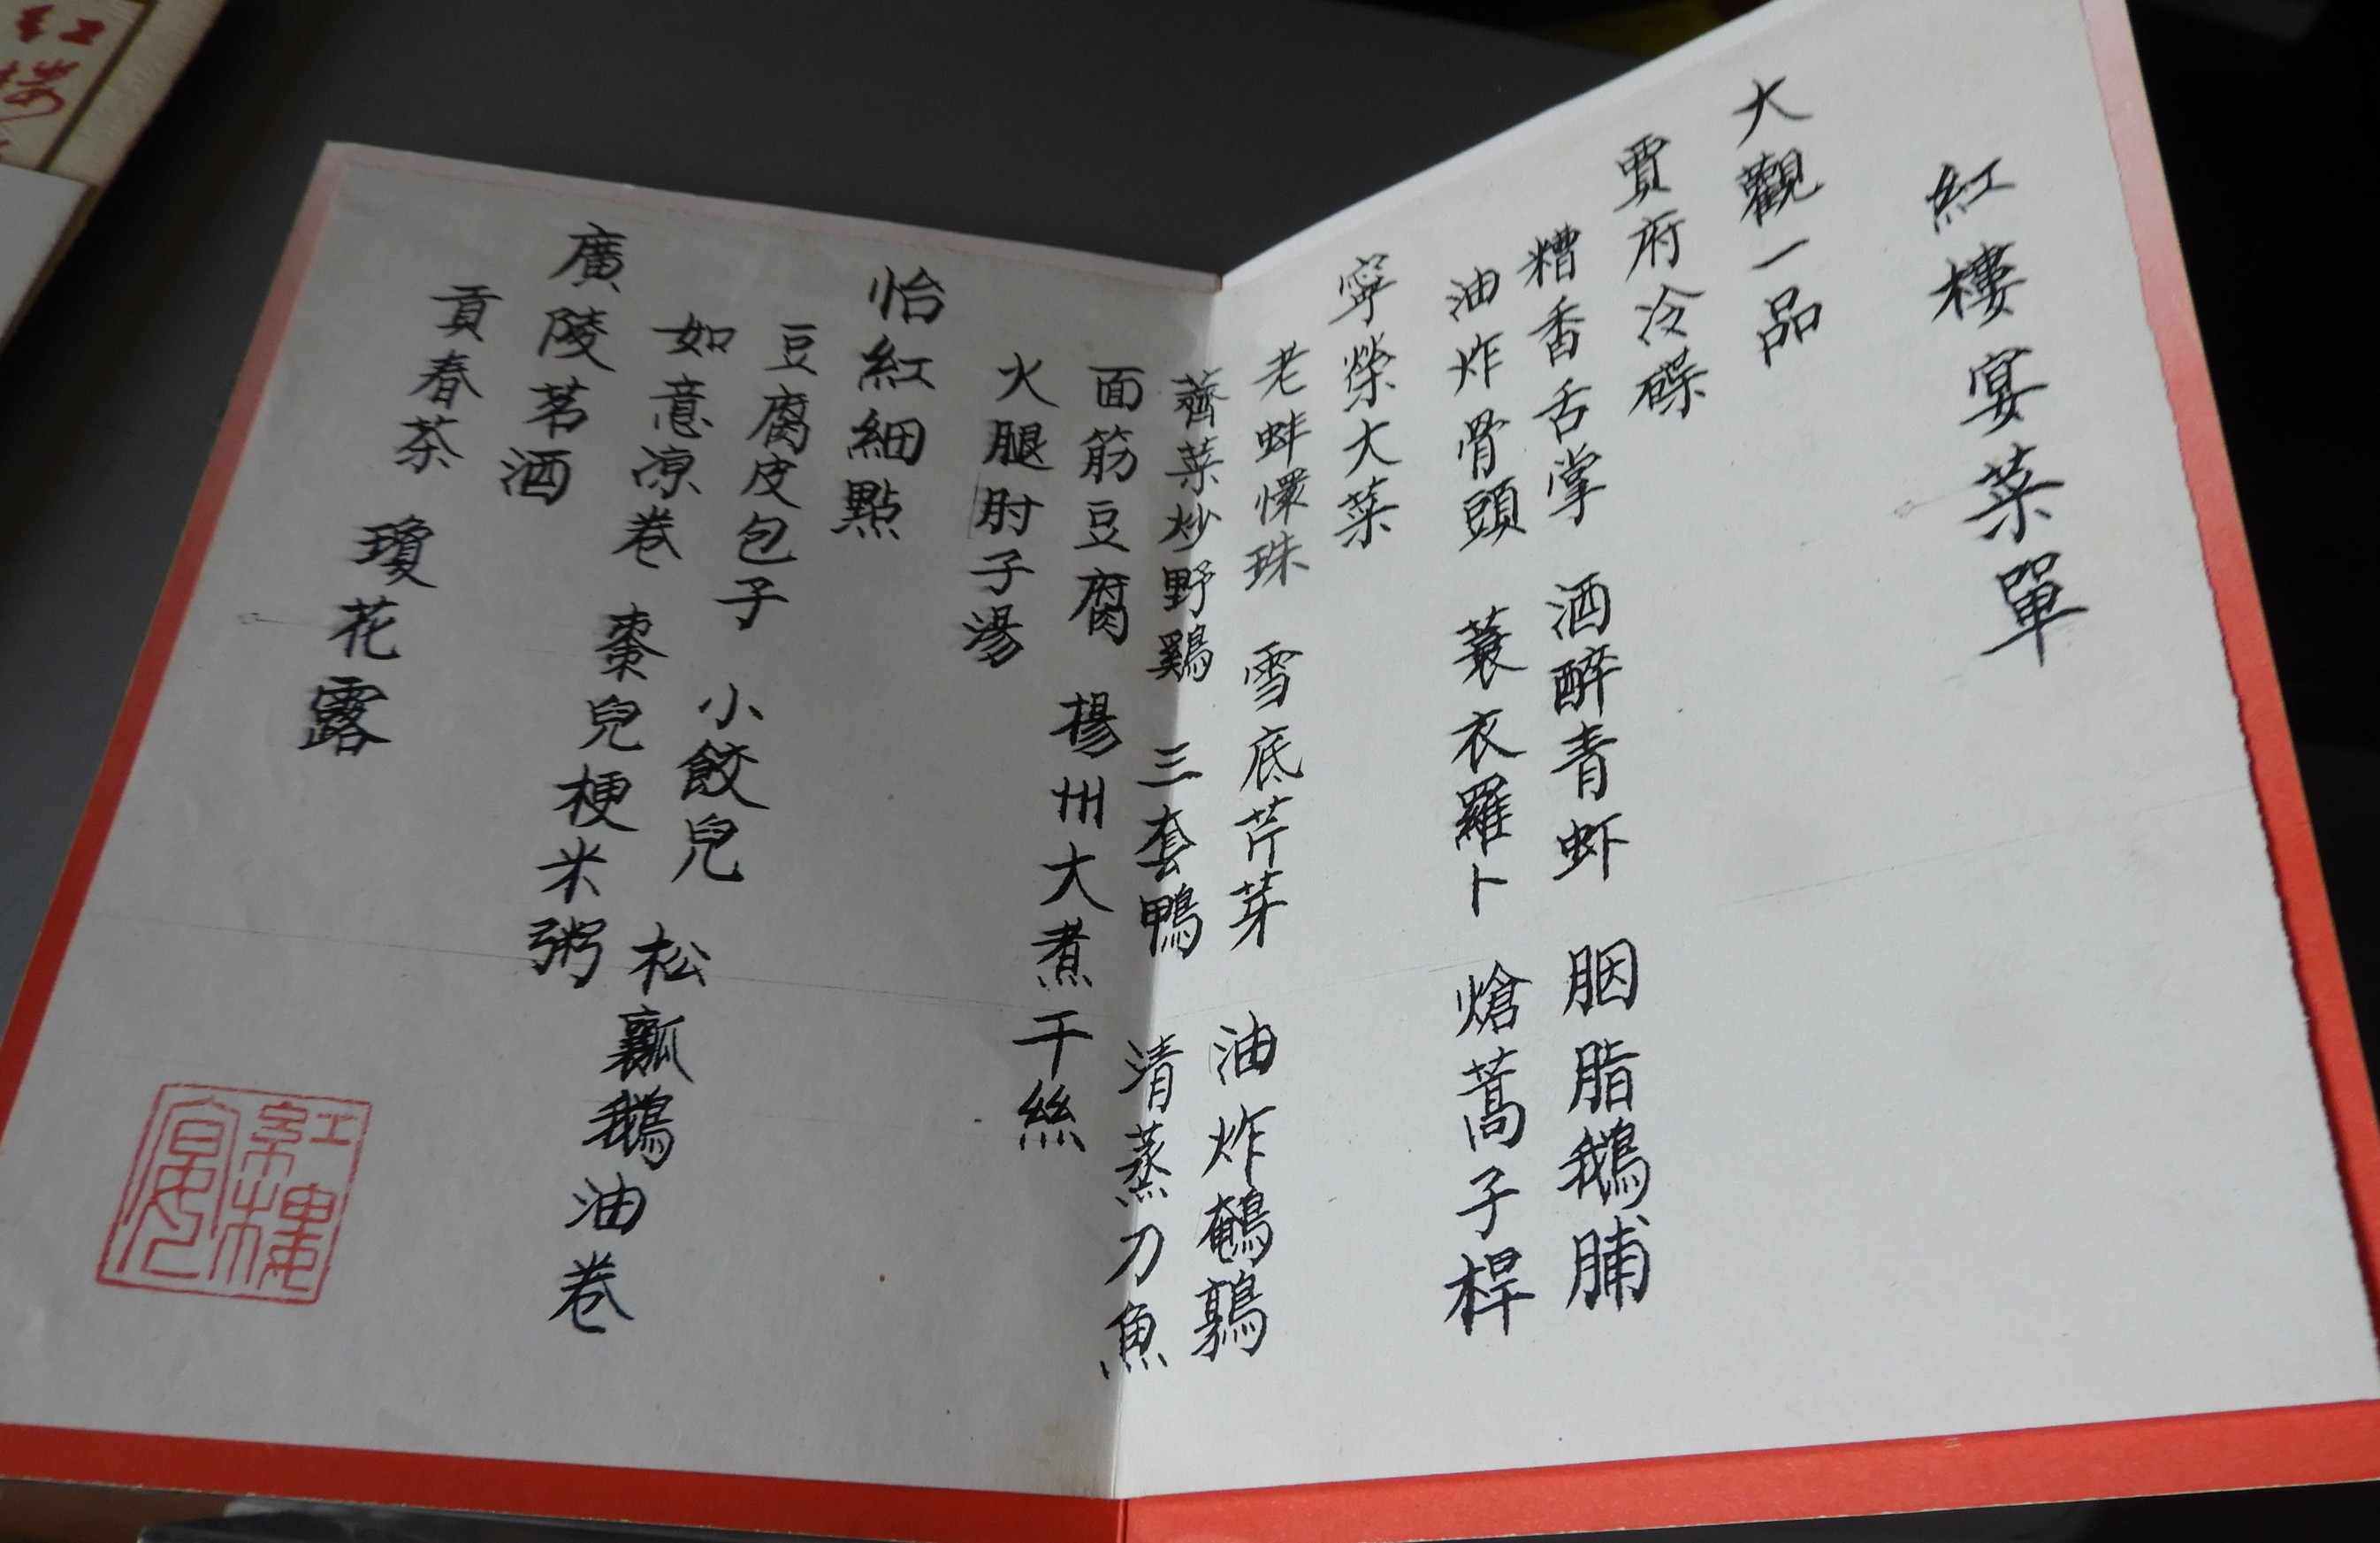 紅樓宴菜單
大觀一品
賈府冷碟
糟香舌掌 酒醉青虾 胭脂鵝脯
油炸骨頭 蓑衣羅卜 熗蒿子桿
寧榮大菜
老蚌懷珠 雪底芹芽 油炸鵪鶉
薺菜炒野鷄 三套鴨 清蒸刀魚
面筋豆腐 揚州大煮干絲
火腿肘子湯
怡紅細點
豆腐皮包子 小餃兒 松瓤鵝油卷
如意凉卷 棗兒梗米粥
廣陵茗酒
貢春茶 瓊花露
紅樓宴
红楼